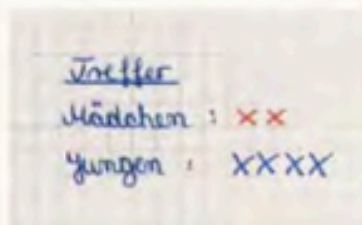 Treffer
Mädchen : x x
Jungen : XXXX